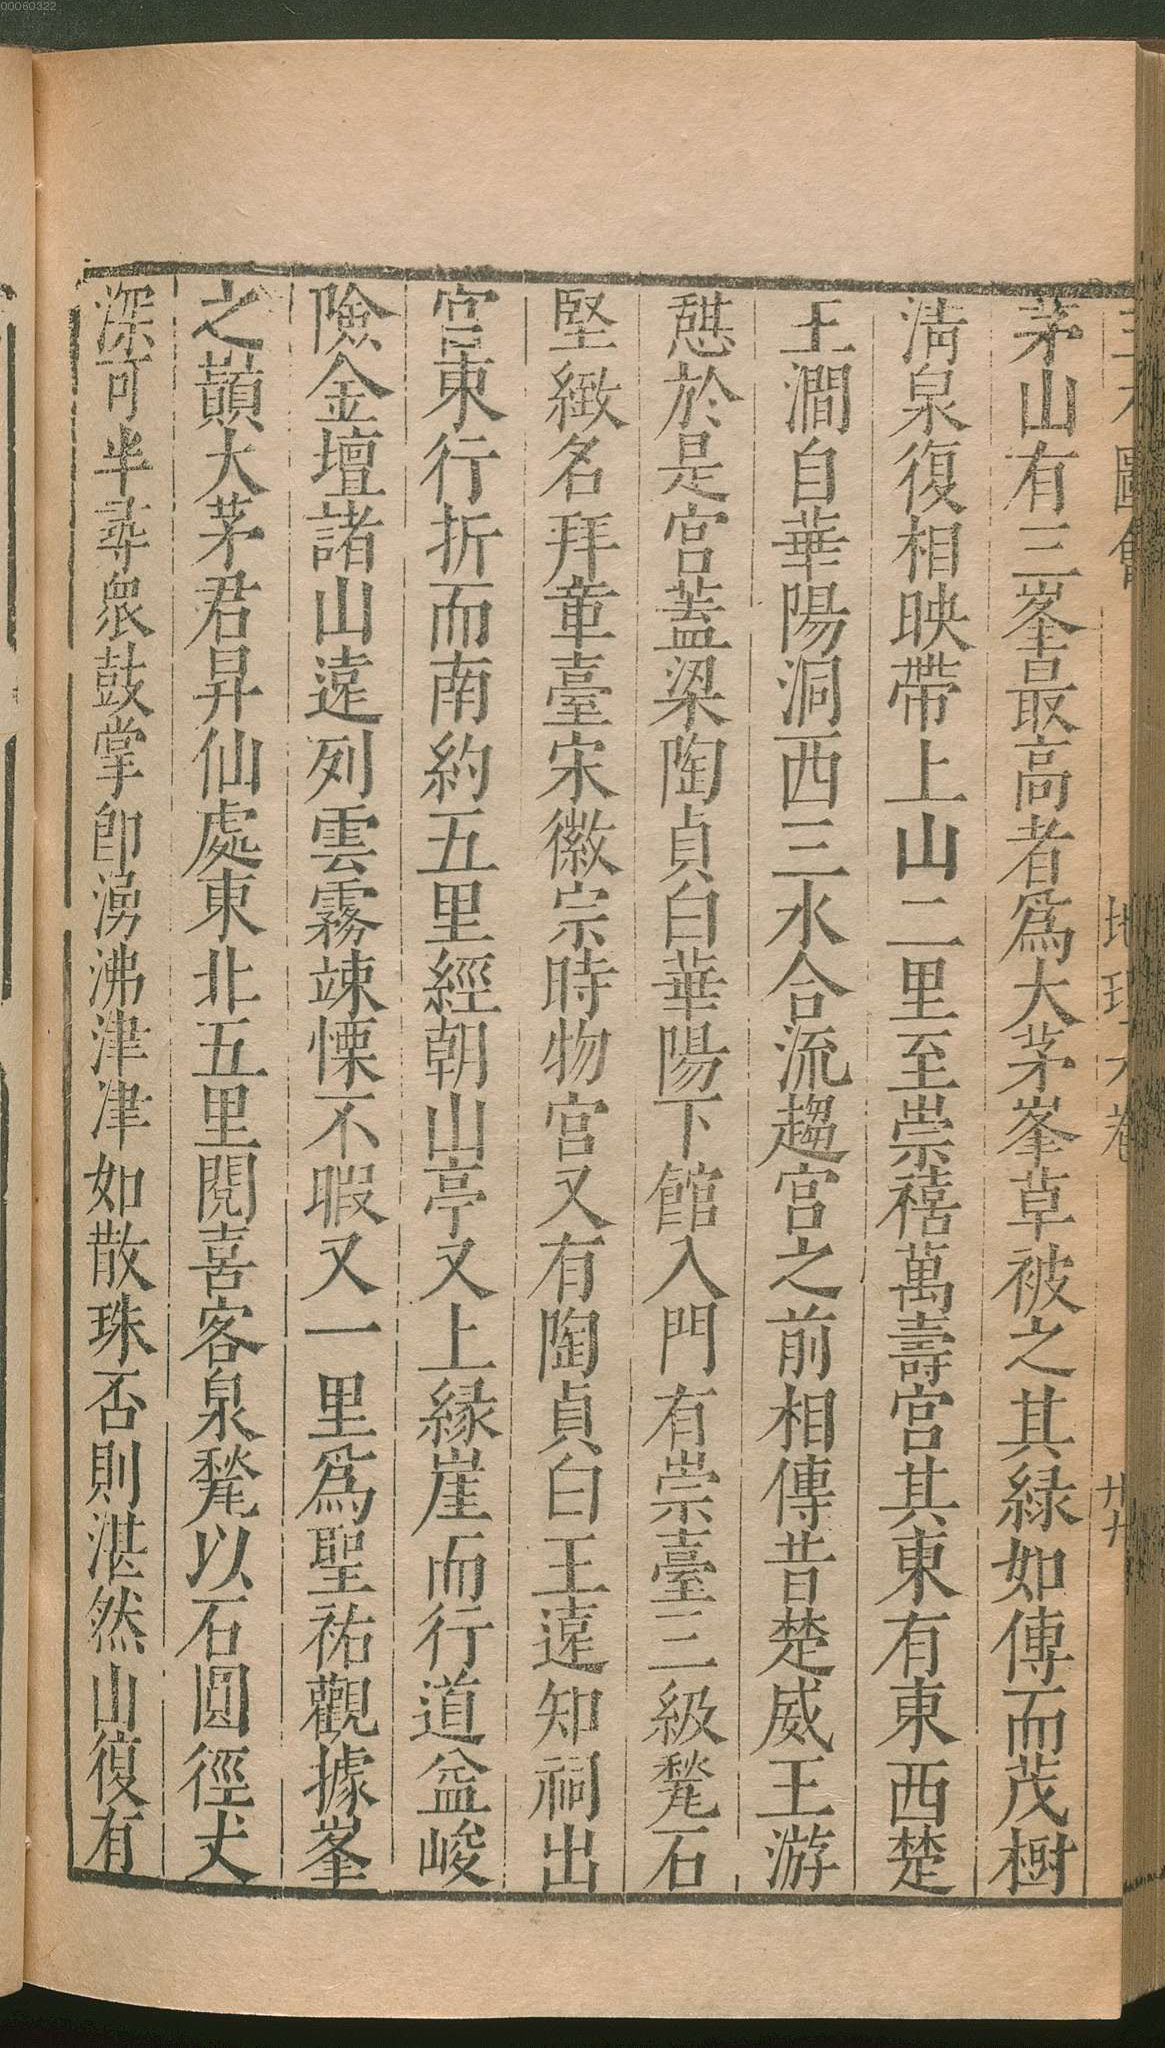 00060322
圖會 地理 卷
茅山有三峯最高者爲大茅峯草被之其緑如傅而茂樹
淸泉復相映帶上山二里至崇禧萬壽宮其東有東西楚
王澗自華陽洞西三水合流趨宮之前相傳昔楚威王游
憇於是宮蓋梁陶貞白華陽下館入門有崇臺二級甃石
堅緻名拜章臺宋徽宗時物宮又有陶貞白王遠知祠出
宮東行折而南約五里經朝山亭又上緣崖而行道益峻
險金壇諸山遠列雲霧竦慄不暇又一里爲聖祐觀據峯
之巔大茅君昇仙處東北五里閱喜客泉甃以石圓徑丈
深可半尋衆鼓掌卽湧沸津津如散珠否則湛然山復有